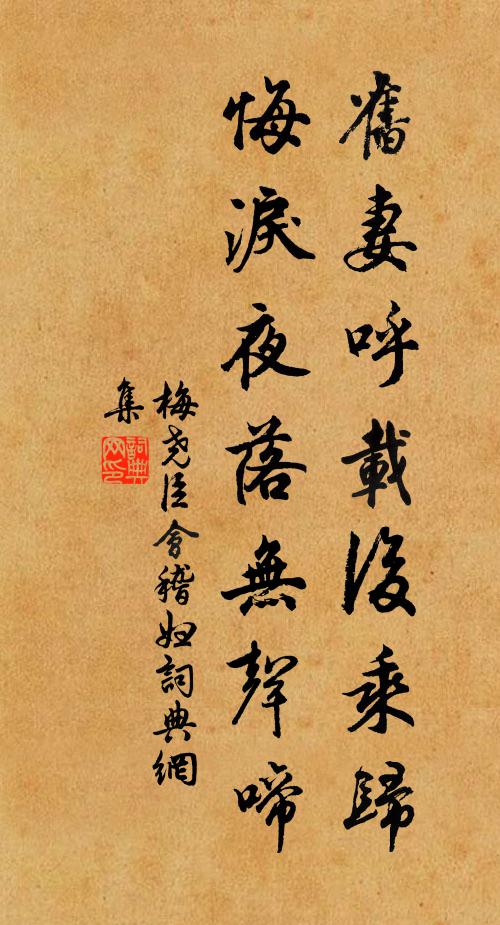 舊妻呼載後乘歸
悔淚夜落無聲啼
梅堯臣會稽婦詞典網
集
詞典網印